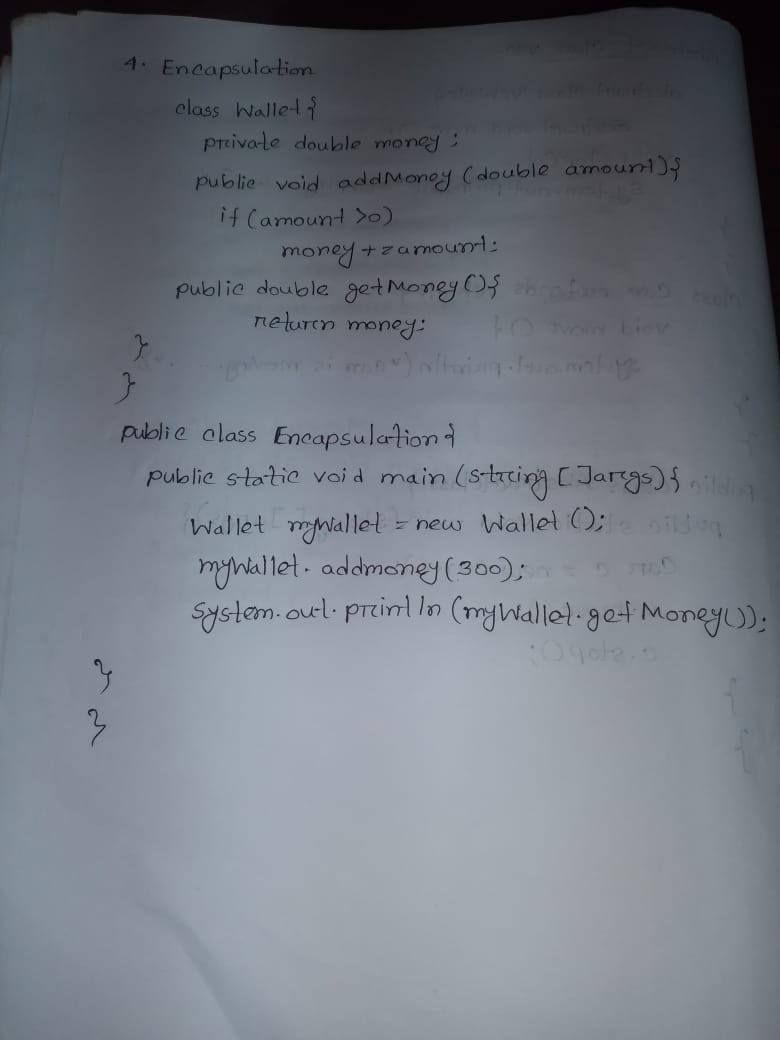 4. Encapsulation
class Wallet{
private double money;
public void addMoney (double amount){
if (amount >0)
money += amount:
public double getMoney(){
return money:
}
}
public class Encapsulation{
public static void main (string []args){
Wallet myWallet = new Wallet ();
myWallet. addmoney(300);
System.out.println (myWallet.getMoney());
}
}